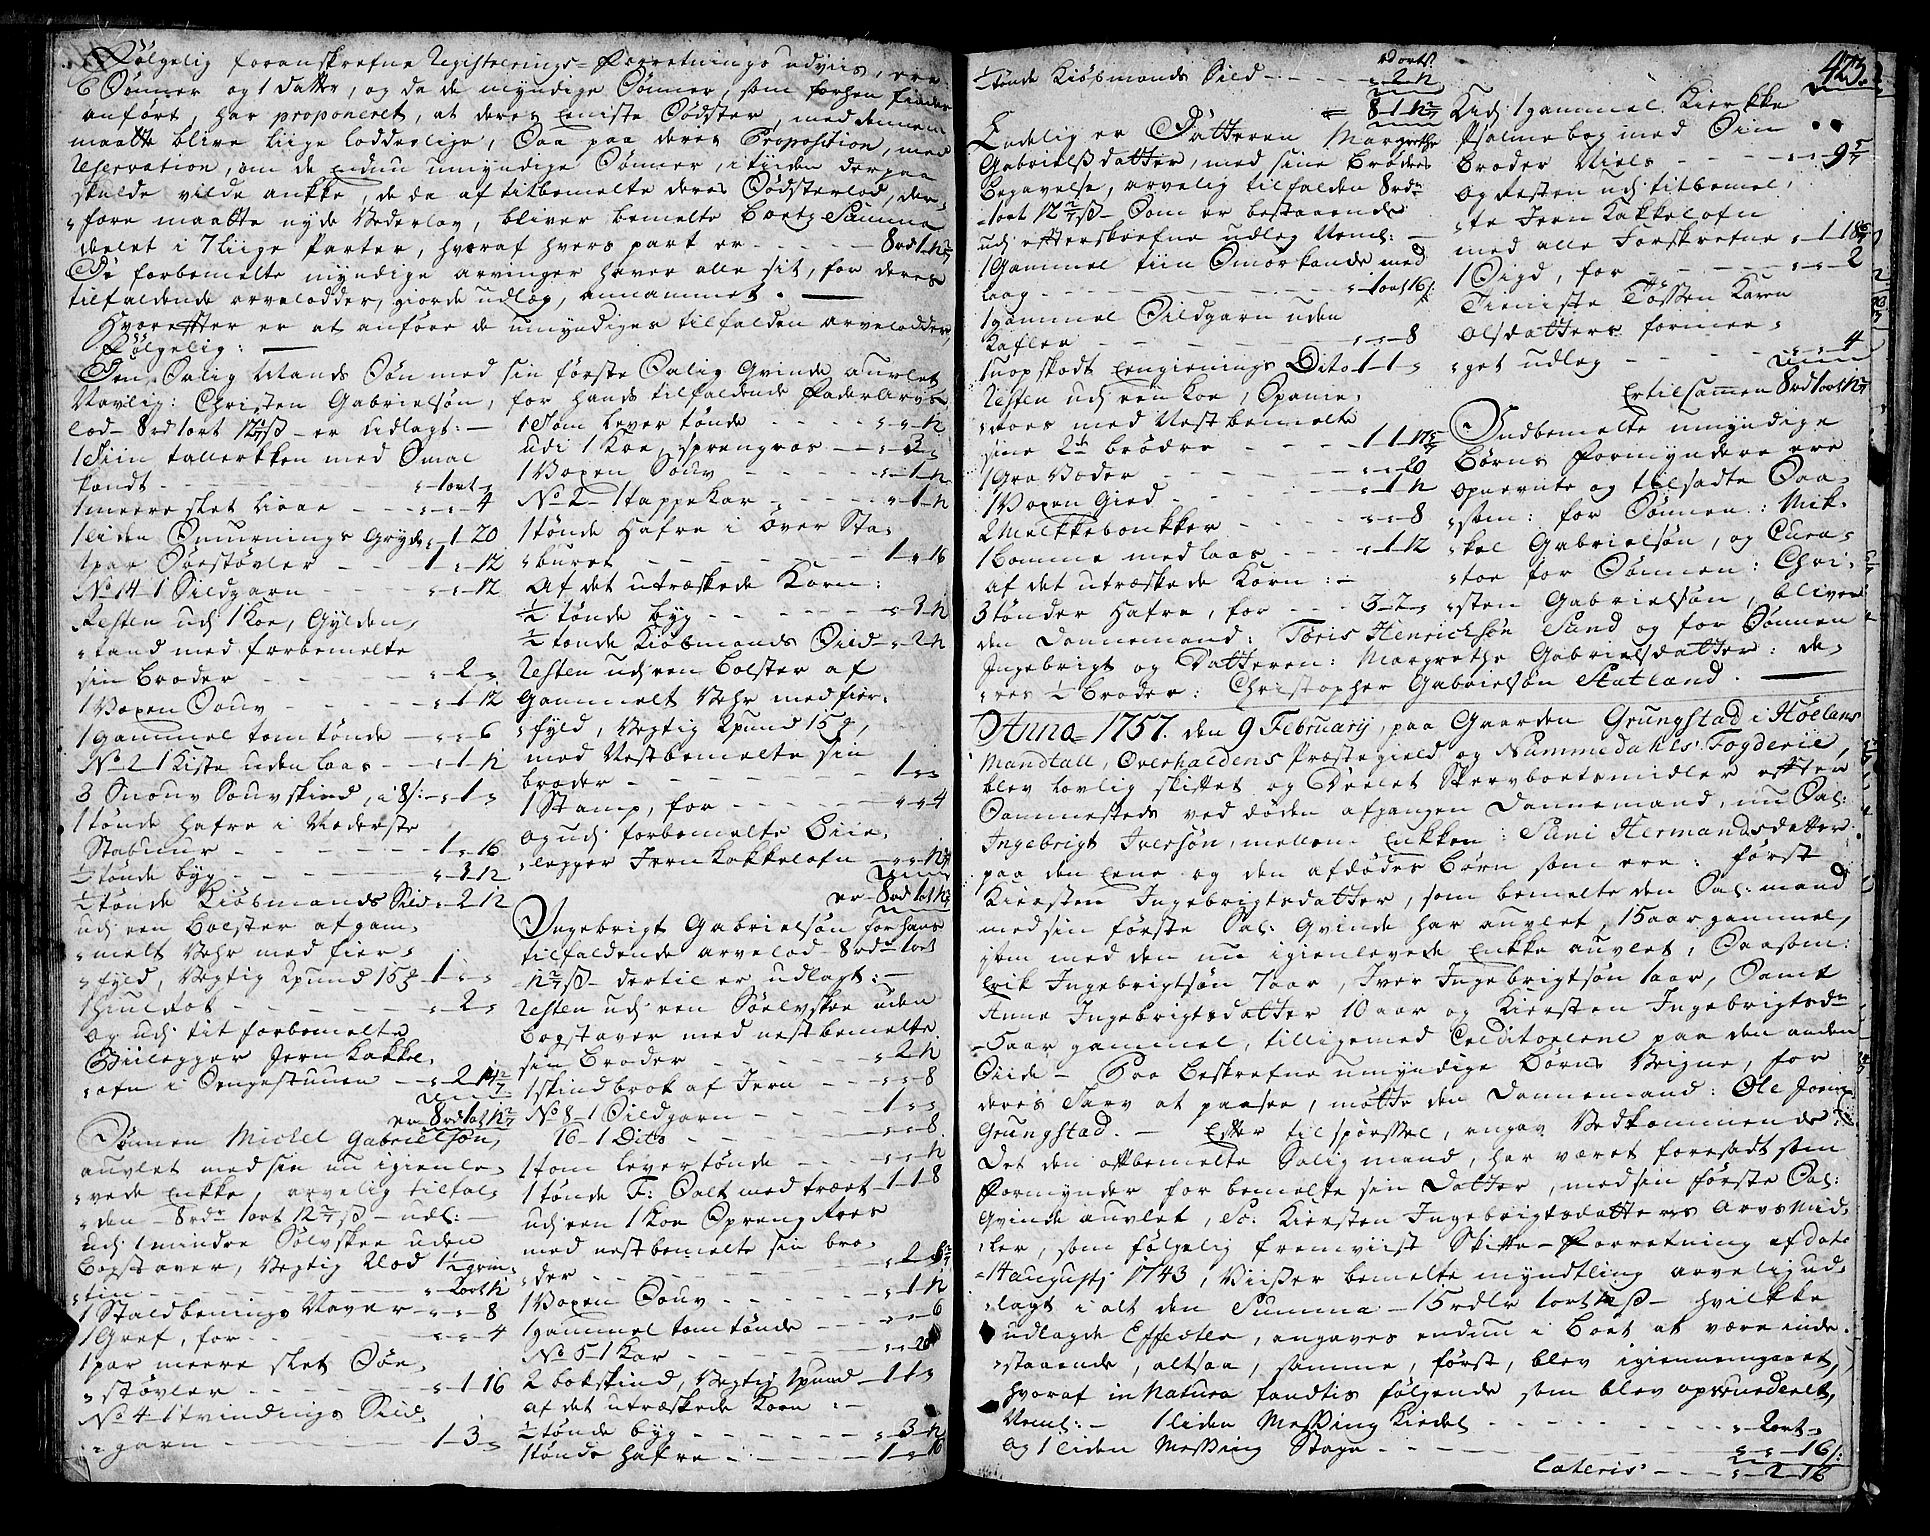 Følgelig foranskrefne Registerings-Forretnings udviis, ere
6 Sønner og 1 datter, og da de myndige Sønner, som forhen findes
anført, har proponeret, at deres Eeniste Sødster, med dennem
maatte blive liige lodderlige, Saa paa deres Proposition, med
Reservation, om de Endnu umyndige Sønner, i tiiden derpaa
skulde vilde ankke, de da af titbemelte deres Sødsterlod, der-
fore maatte nyde Vederlav, bliver bemelte boets Summa
deelet i 7 liige parter, hvoraf hvers part er - - - 8 rd 1-12 2/7
De forbemelte myndige arvinger haver alle sit, for deres
tilfaldende arvelodder, giorde udlæg, annammet.
Hvorefter er at anføre de umyndiges tilfalden arvelodder,
følgelig:
Den Salig Mands Søn med sin første Salig Qvinde auvlet
Navlig: Christen Gabrielsøn, for hands tilfaldende FaderArvs
lod - 8 rd 1 ort 12 2/7 ß - er Udlagt: -
1 Tiin tallerkken med Smal
kandt - - - 1 ort -
1 meere slet liaae - - - 4
1 liden Smurnings Gryde - 1-20
1 par Søestøvler - - 1 - 12
No 14-1 Sildgarn - - - 12
Resten udj 1 Koe, Gylden,
tand med forbemelte
sin Broder - - - 2 -
1 Voxen Souv - - - 1-12
1 gammel tom tønde - - - 6
No 2-1 Kiste uden laas - - 1-12
3 Snouv Souvskind, a 8/: - 1 -
1 tønde Hafre i Nederste
Stabuur - - - 1 - 16
1/4 tønde byg - - - 3-12
1/4 tønde Kiøbmands Sild - 2-12
udj een bolster af gam,
melt Vehr med fier,
fyld, Vegtig 2 pund 15 - 1 - -
1 Huuldot - - - 2 -
Og udj tit forbemelte
Biilegger Jern Kakkel,
ofn i Sengestuuen - - 2-14 2/7
er 8 rd 1 ort 12 2/7
Sønnen Michel Gabrielsøn,
auvlet med sin nu igienle,
vede Enkke, arvelig tilfal,
den - 8 rdr 1 ort 12 2/7 ß - udl: -
udj 1 mindre Sølvskee uden
bogstaver, Vegtig 2 lod 1/2 qvin,
tin - - - 2 ort 12
1 Staldbenings Naver - - - 8
1 Gref, for - - - 4
1 par meere slet Søe,
støvler - - - 1-16
No 4-1 tvindnings Sild,
garn - - - 1-3 -
1 Tom levertønde - - - 12
udi 1 Koe, sprengroes - - 3 -
1 Voxen Souv - - 1-12
No 2-1 tappe Kar - - - 1-12
1 tønde Hafre i Över Sta,
buret - - - 1 - 16
Af det utræskede Korn:
1/4 tønde byg - - - 3-12
1/4 tønde Kiøbmands Sild - 2-12
Resten udj een bolster af
Gammelt Vehr med fier,
fyld, Vegtig 2 pund 15,
med Nestbemelte sin
broder - - - 1 - -
1 Stamp, for - - - 4
og udj forbemelte Biie,
legger Jern Kakkelofn - - 12 2/7
er 8 rd 1 ort 12 2/7
Ingebrigt Gabrielsøn for hans
tilfaldende arvelod - 8 rdr 1 ort
12 2/7 ß - dertil er udlagt: -
Resten udj een Søelvskee uden
bogstaver med nestbemelte
sin Broder - - - 2-12
1 skindbrot af Jern - - - 8
No 8-1 Sildgarn - - 1 - -
16-1 Dito - - - 8
1 tom levertønde - - - 12
1 tønde F: Salt med træet - 1-1-8
udj een 1 Koe Spreng Roes
med nestbemelte sin bro,
der - - - 2-6 2/7
1 Voxen Souv - - 1-12
1 gammel tom tønde - - - 6
No 5-1 Kar - - - 20
2 bokskind, Vegtig 1 pund - 1-1 -
af det utræskede Korn: -
1/4 tønde byg - - - 3-12
1 tønde Hafre - - - 1 - 16
423.
1/4 tønde Kiøbmands Sild - - - 2-12
8-1-12 2/7
Endelig er Datteren Margrethe
Gabrielsdatter, med sine Brødres
Begavelse, arvelig tilfalden 8 rdr
1 ort 12 2/7 ß - Som er bestaaende
udj efterskrefne udlæg Neml: -
1 Gammel tiin Smørkande med
laag - - - 1 ort 16 /:
1 gammel Sildgarn uden
Kafler - - - 8
1 uopskødt Eengienings Dito 1-1 -
Resten udj een Koe, Spane,
roes med Nestbemelte
sine 2de brødre - - 1-1-17 5/7
1 Gra Væder - - - 20
1 Voxen Gied - - - 1-12
2 Melkkebonkker - - - 8
1 bomme med laas - - 1-12
af det utræskede Korn: -
3 tønder Hafre, for - - 3-2 -
Udj 1 gammel Kierkke
Psalmebog med Sin
broder Niels - - - 9 5/7
og Resten udj titbemel,
te Jern Kakkelofn
med alle Forskrefne - 1-18 6/7
1 Sigd, for - - - 2
Tieniste Tøssen Karen
Olsdatters formee,
get udlæg - - - 4
Er tilsammen 8 rd 1 ort 12 2/7
Indbemelte umyndige
børns Formyndere ere
opnevnte og tilsadte Saa,
som: for Sønnen: Mik,
kel Gabrielsøn, og Cura,
tor for Sønnen: Chri,
sten Gabrielsøn, bliver
den Dannemand: Toris Henrichsøn Sund og for Sønnen
Ingebrigt og Datteren: Margrethe Gabrielsdatter: de,
res 1/2 Broder: Christopher Gabrielsøn Statland.
Anno 1757. den 9 February, paa Gaarden Grungstad i Høelans
Mandtall, Overhaldens Præstegield og Nummedahls Fogderie,
blev lovlig skiftet og Deelet Sterfboets midler efter
Sammesteds ved døden afgangen Dannemand, nu Sal:
Ingebrigt Iversøn, mellem Enkken: Suni Hermandsdatter
paa den Eene og den afdødes Børn som ere: først
Kiersten Ingebrigtsdatter, som bemelte den Sal: mand
med sin første Sal: Qvinde har auvlet, 15 aar gammel,
item med den nu igienlevede Enkke auvlet, Saasom:
Erik Ingebrigtsøn 7 aar, Iver Ingebrigtsøn 1 aar, Samt
Anne Ingebrigtsdatter 10 aar og Kiersten Ingebrigtsdr
5 aar gammel, tilligemed Creditorerne paa den anden
Siide - Paa beskrefne umyndige Børns Veigne, for
deres Tarv at paasee, mødte den Dannemand: Ole Joen
Grungstad. - Efter tilspørssel, angav Vedkommende,
Det den oftbemelte Salig mand, har været foresadt som
Formynder for bemelte sin Datter, med sin første Sal:
Qvinde auvlet, Sc: Kiersten Ingebrigtsdatters Arvs Mid,
ler, som følgelig fremviist Skifte-Forretning af dato
14 augustj 1743, Viisser bemelte myndtling arvelig ud,
lagt i alt den Summa - 15 rdlr 1 ort 12 ß - hvilkke
udlagde Effecter, angaves endnu i Boet at være inde,
staaende, altsaa, samme, først, blev igiennemgaaet,
hvoraf in Natura fandtis følgende som blev opvurderet,
Neml: - 1 liden Messing Kiedel - - - 2 ort -
og 1 liden Messing Stage - - - 16 /:
Lateris - - - 2-16